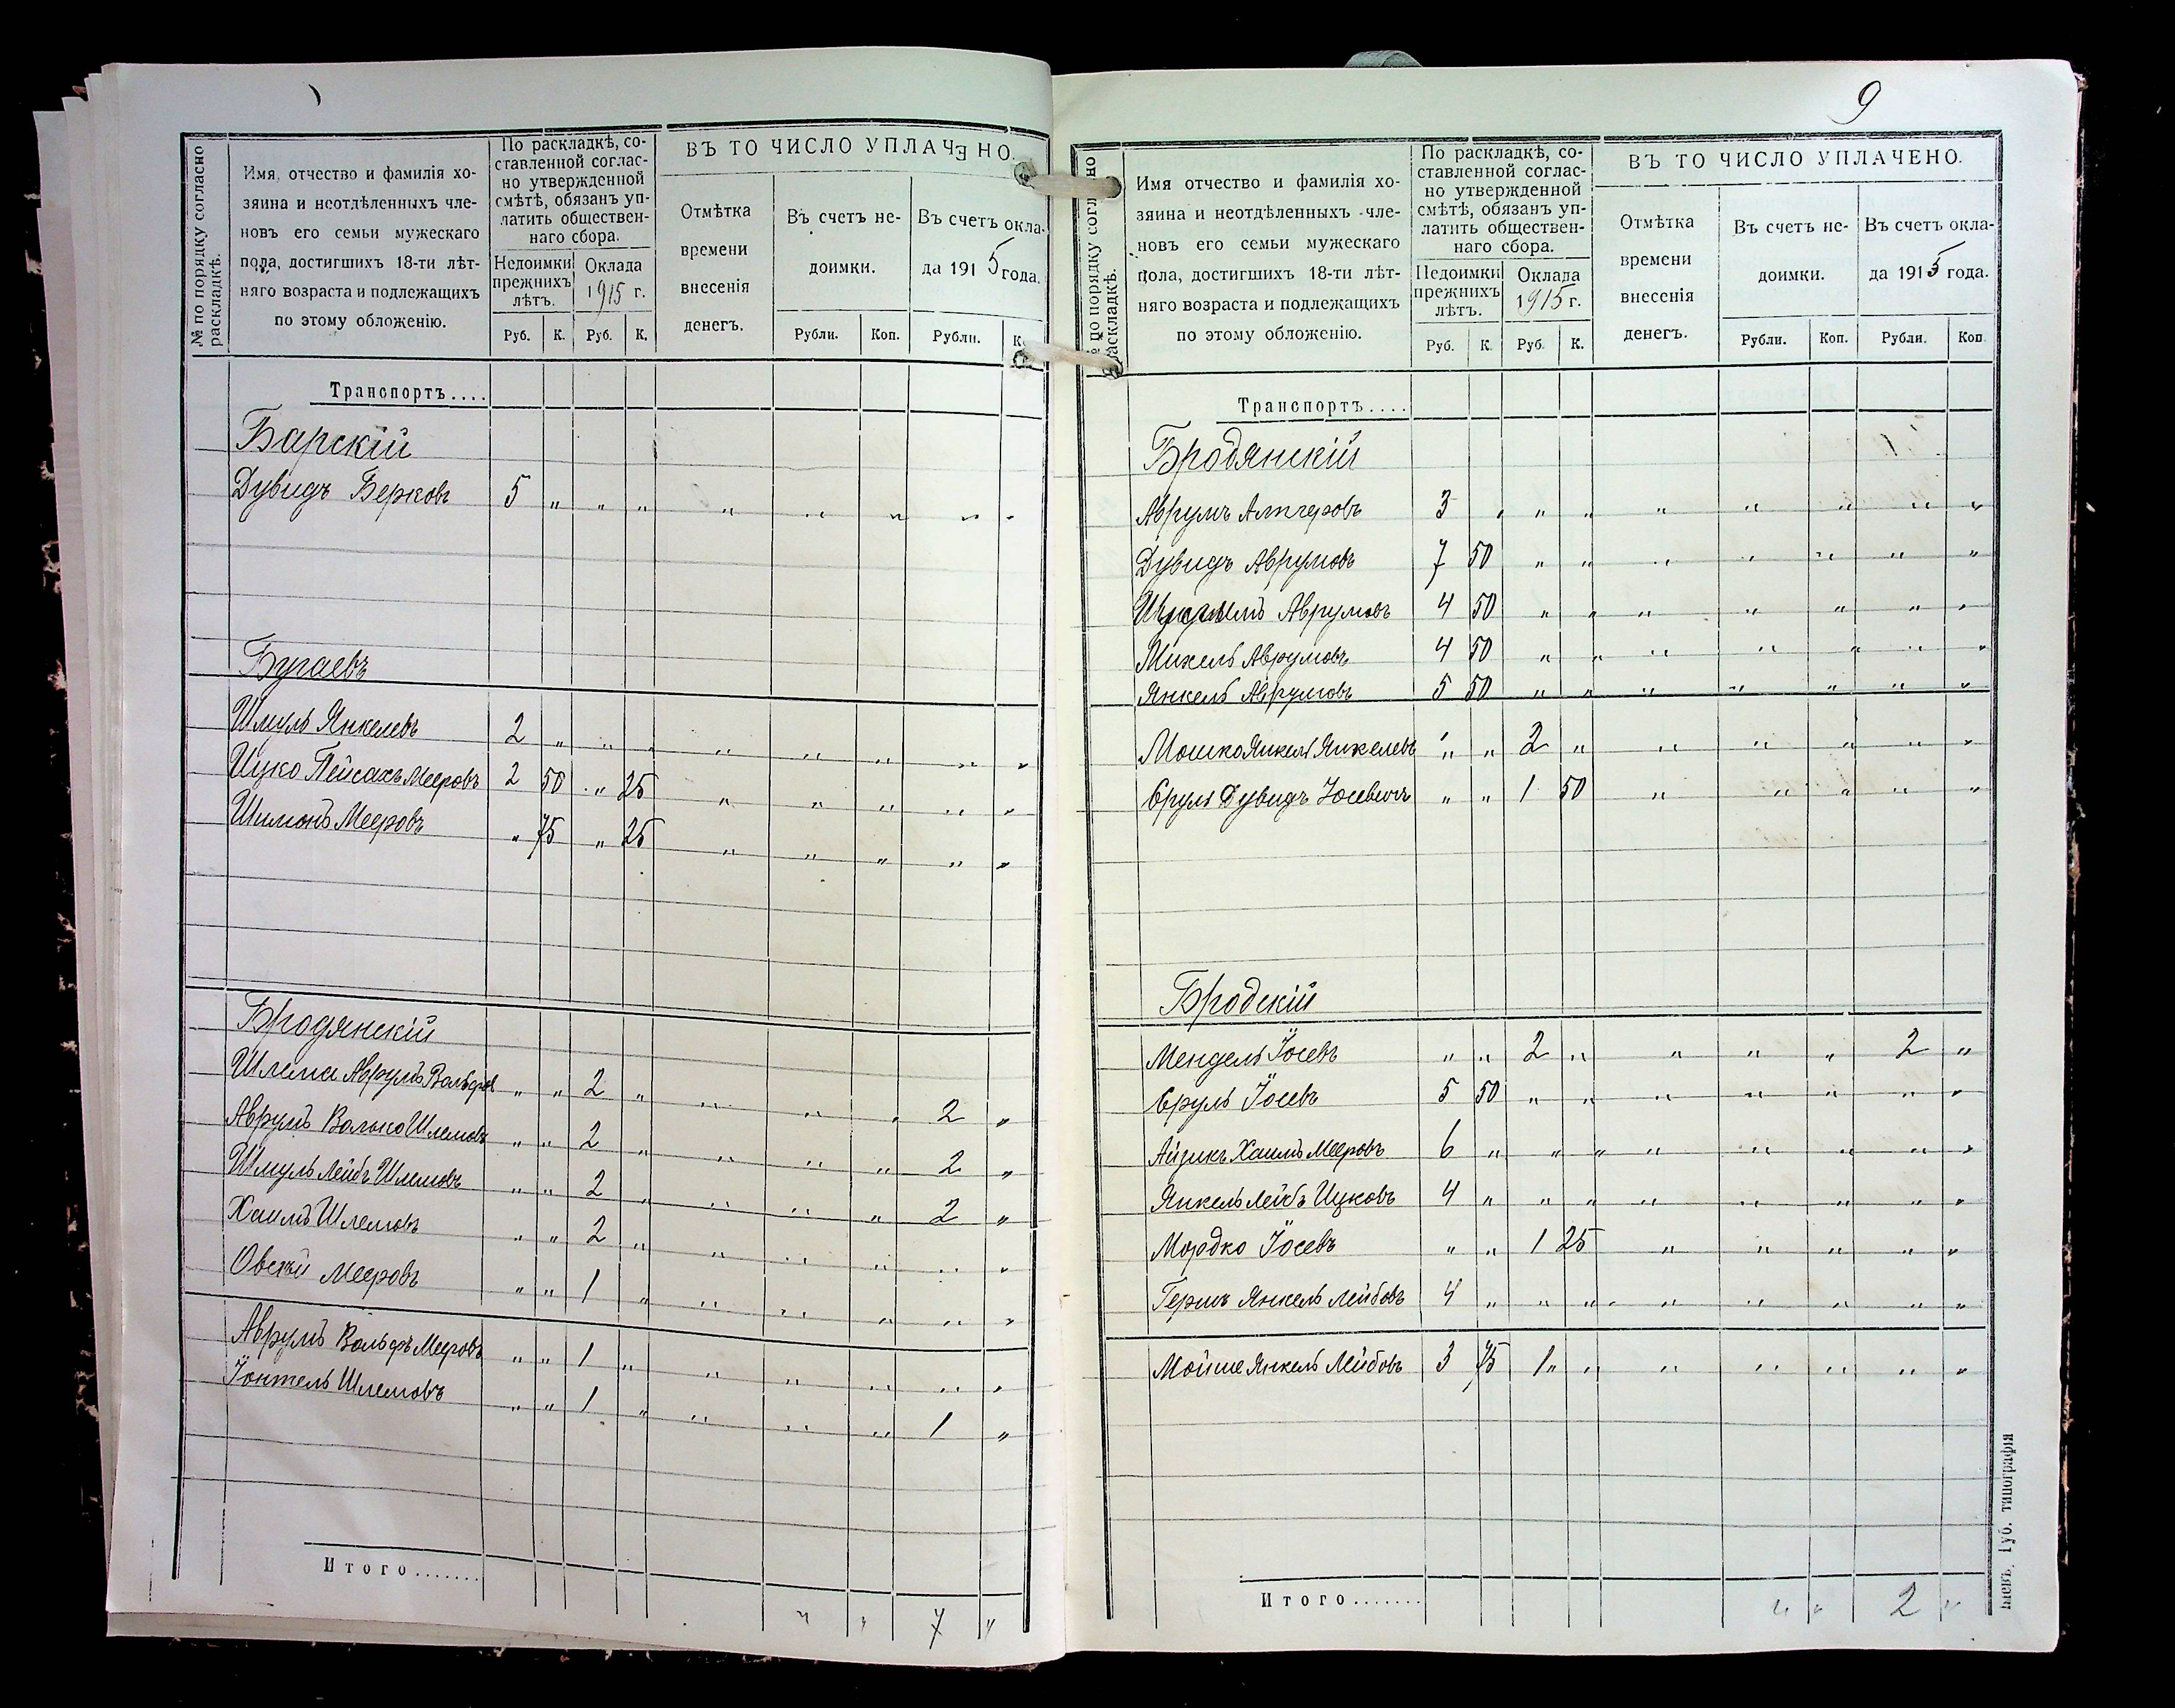 № по порядку согласно раскладкѣ.
Имя, отчество и фамилія хо-
зяина и неотдѣленныхъ чле-
новъ его семьи мужескаго
пола, достигшихъ 18-ти лѣт-
няго возраста и подлежащихъ
по этому обложенію.
По раскладкѣ, со-
ставленной соглас-
но утвержденной
смѣтѣ, обязанъ уп-
латить обществен-
наго сбора.
Недоимки прежнихъ лѣтъ.
Оклада 1915 г.
Руб. К. Руб. К.
ВЪ ТО ЧИСЛО УПЛАЧЕНО.
Отмѣтка
времени
внесенія
денегъ.
Въ счетъ не-
доимки.
Въ счетъ окла-
да 1915 года.
Рубли. Коп. Рубли. К.
Транспортъ....
Барскій
Дувидъ Берковъ 5 " " " " " " " "
Бугаевъ
Шмуль Янкелевъ 2 " " " " " " " "
Ицко Пейсахъ Мееровъ 2 50 " 25 " " " " "
Шимонъ Мееровъ " 75 " 25 " " " " "
Бродянскій
Шлема Аврумъ Вольфов " " 2 " " " " 2 "
Аврумъ Волько Шлемовъ " " 2 " " " " 2 "
Шмуль Лейбъ Шлемовъ " " 2 " " " " 2 "
Хаимъ Шлемовъ " " 2 " " " " " "
Овсѣй Мееровъ " " 1 " " " " " "
Аврумъ Вольфъ Мееровъ " " 1 " " " " " "
Іонтель Шлемовъ " " 1 " " " " 1 "
Итого.......
" " 7 "
9
№ по порядку согласно раскладкѣ.
Имя отчество и фамилія хо-
зяина и неотдѣленныхъ чле-
новъ его семьи мужескаго
пола, достигшихъ 18-ти лѣт-
няго возраста и подлежащихъ
по этому обложенію.
По раскладкѣ, со-
ставленной соглас-
но утвержденной
смѣтѣ, обязанъ уп-
латить обществен-
наго сбора.
Недоимки прежнихъ лѣтъ.
Оклада 1915 г.
Руб. К. Руб. К.
ВЪ ТО ЧИСЛО УПЛАЧЕНО.
Отмѣтка
времени
внесенія
денегъ.
Въ счетъ не-
доимки.
Въ счетъ окла-
да 1915 года.
Рубли. Коп. Рубли. Коп
Транспортъ....
Бродянскій
Аврумъ Алтеровъ 3 " " " " " " " "
Дувидъ Аврумовъ 7 50 " " " " " " "
Аврумовъ 4 50 " " " " " " "
Михель Аврумовъ 4 50 " " " " " " "
Янкель Аврумовъ 5 50 " " " " " " "
Мошко Янкель Янкелевъ " " 2 " " " " " "
Сруль Дувидъ Іосевичъ " " 1 50 " " " " "
Бродскій
Мендель Іосевъ " " 2 " " " " 2 "
Сруль Іосевъ 5 50 " " " " " " "
Айзикъ Хаимъ Мееровъ 6 " " " " " " " "
Янкель Лейбъ Ицковъ 4 " " " " " " " "
Мордко Іосевъ " " 1 25 " " " " "
Гершъ Янкель Лейбовъ 4 " " " " " " " "
Мойше Янкель Лейбовъ 3 75 1 " " " " " "
Итого.......
" " 2 "
Кіевъ. Губ. типографія